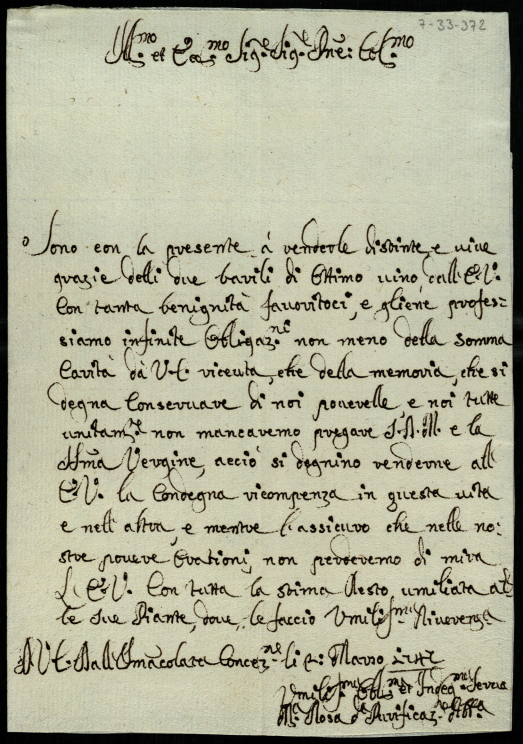 7-33-372
Ill.mo et Ecc.mo Sig.e Sig.e Pne: Col.mo
Sono con la presente à renderle distinte, e vive
grazie delli due barili di Ottimo vino, dall'E.V.
Con tanta benignità favoritoci, e gliene profes-
siamo infinite Obligaz.ni non meno della somma
Carità da V.E. riceuta, che della memoria, che si
degna Conservare di noi poverelle, e noi tutte
unitam.te non mancaremo pregare
e la
Vergine, acciò si degnino renderne all'
E.V. la Condegna ricompenza in questa vita
e nell'altra, e mentre l'assicuro che nelle no-
stre povere Orationi, non perderemo di mira
L'E.V. Con tutta la stima Resto, umiliata al-
le Sue Piante, dove, le faccio Umilis.ma Riverenza
D.V.E. Dall'Immacolata Concez.ne li 2: Marzo
Umilis.ma Obl.ma et Indeg.ma Serva
M.a Rosa d.a Purificaz.ne